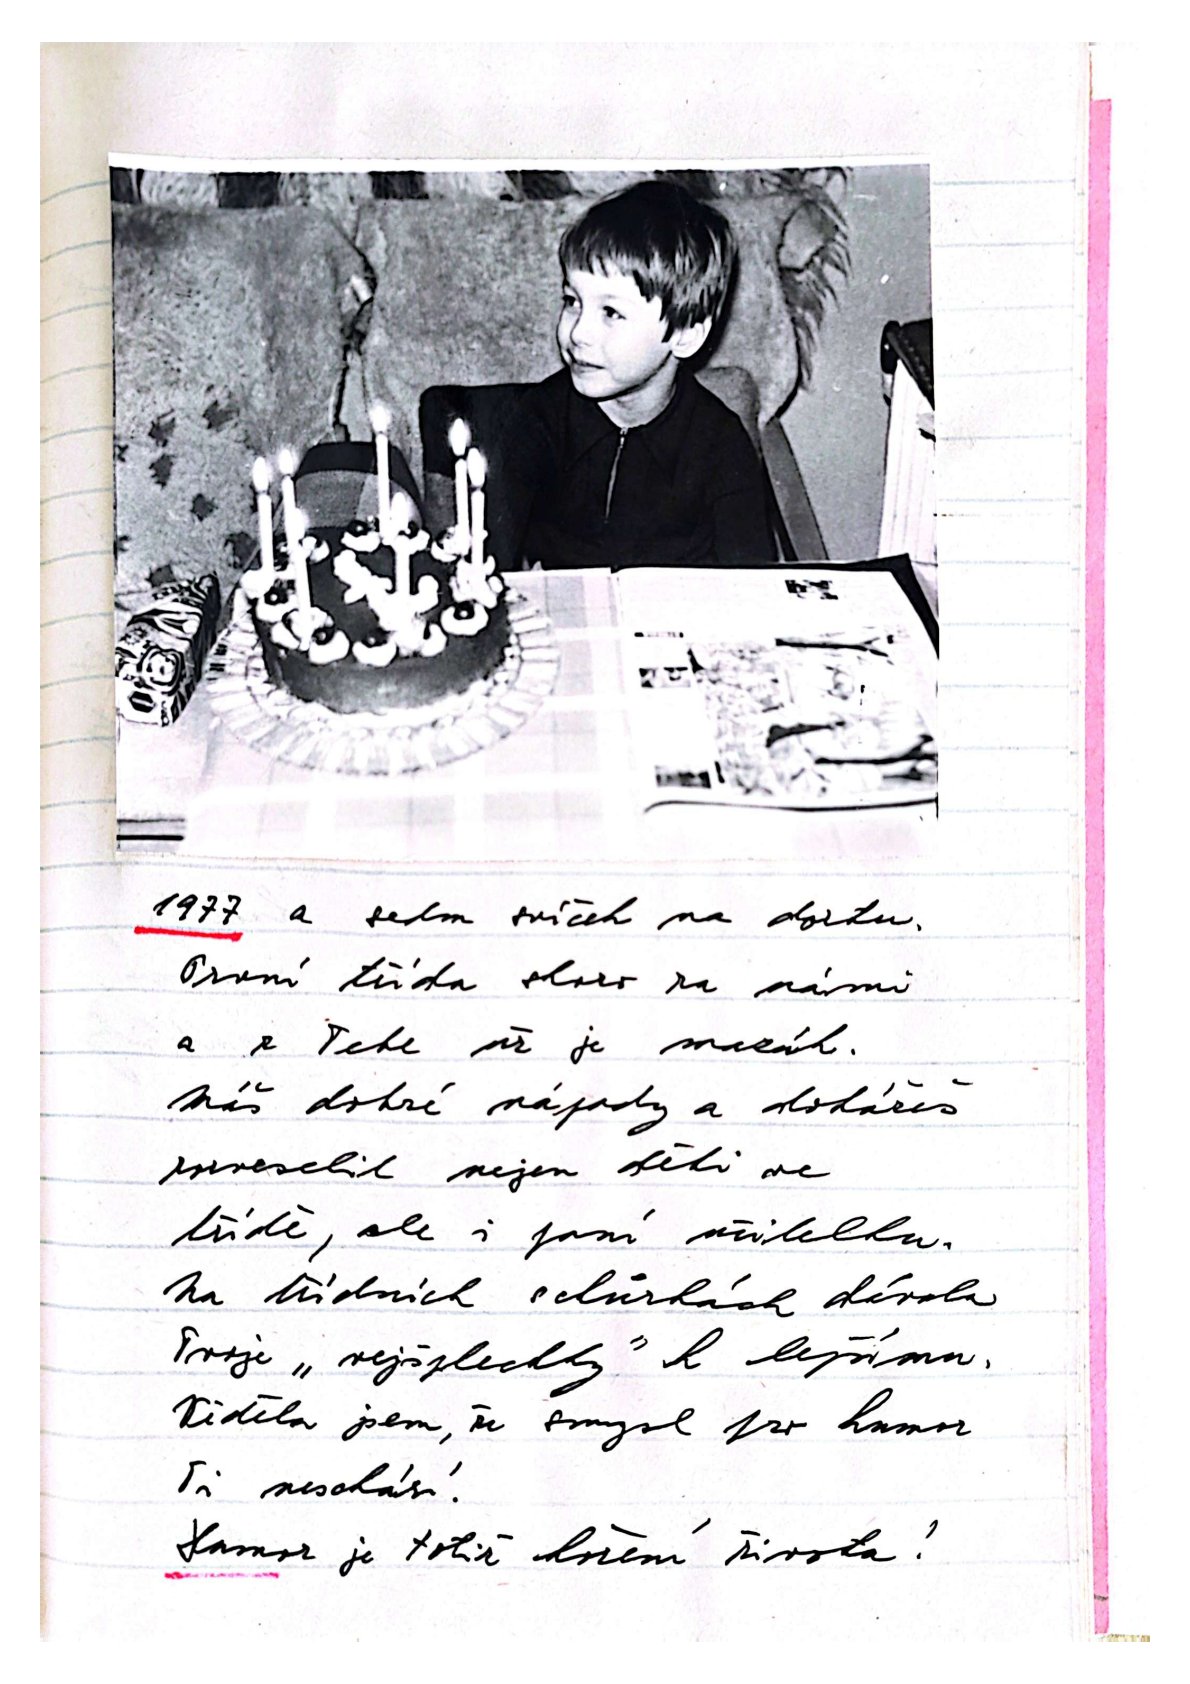 1977 a sedm svíček na dortu.
První třída skoro za námi
a z Tebe už je mazák.
Máš dobré nápady a dokážeš
rozveselit nejen děti ve
třídě, ale i paní učitelku.
Na třídních schůzkách dávala
Tvoje „vejšplechty" k lepšímu.
Viděla jsem, že smysl pro humor
Ti neschází.
Humor je totiž koření života!